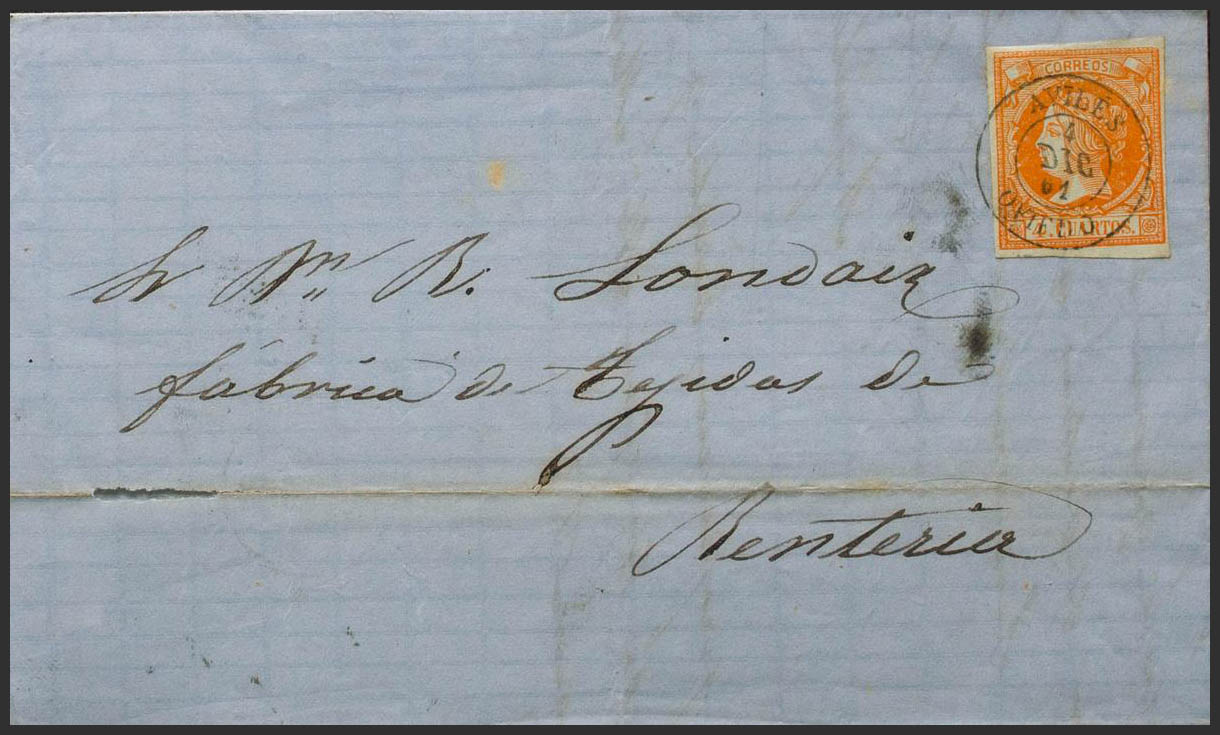 CORREOS
AVILES
4
DIC
61
OVIEDO
CUARTOS.
Sr Dn R. Londaiz
fábrica de Tegidos de
Renteria